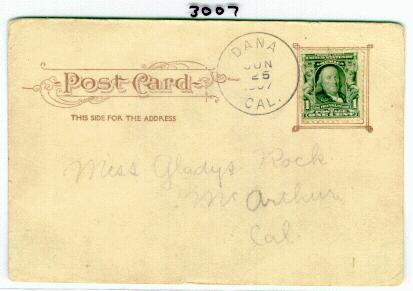 3007
DANA
JUN
25
1907
CAL.
POST CARD
THIS SIDE FOR THE ADDRESS
1
ONE CENT
Miss Gladys Rock
McArthur
Cal.